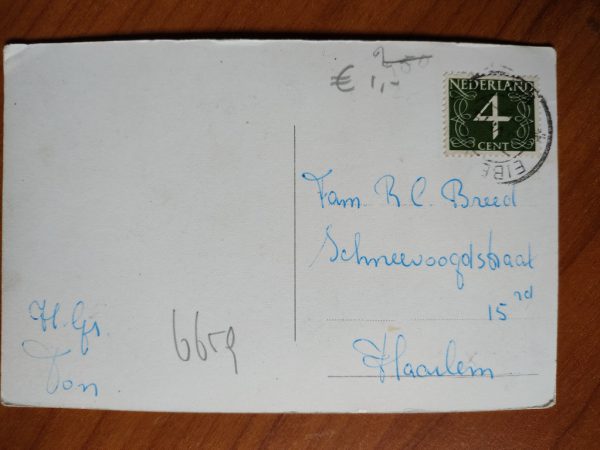 € 1,-
NEDERLAND
4
CENT
EIBE
Fam. R. C. Breed
Schneevoogdstraat
15 rd
Haarlem
H. Gr.
Ton
6659